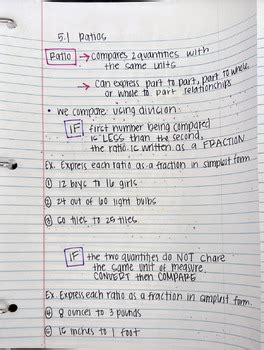 5.1 Ratios
Ratio → compares 2 quantities with
the same units
→ can express part to part, part to whole,
or whole to part relationships
• We compare using division:
IF first number being compared
is LESS than the second,
the ratio is written as a FRACTION
Ex. Express each ratio as a fraction in simplest form.
① 12 boys to 16 girls
② 24 out of 60 light bulbs
③ 60 tiles to 25 tiles
IF the two quantities do NOT share
the same unit of measure,
CONVERT then COMPARE
Ex. Express each ratio as a fraction in simplest form.
④ 8 ounces to 3 pounds
⑤ 16 inches to 1 foot